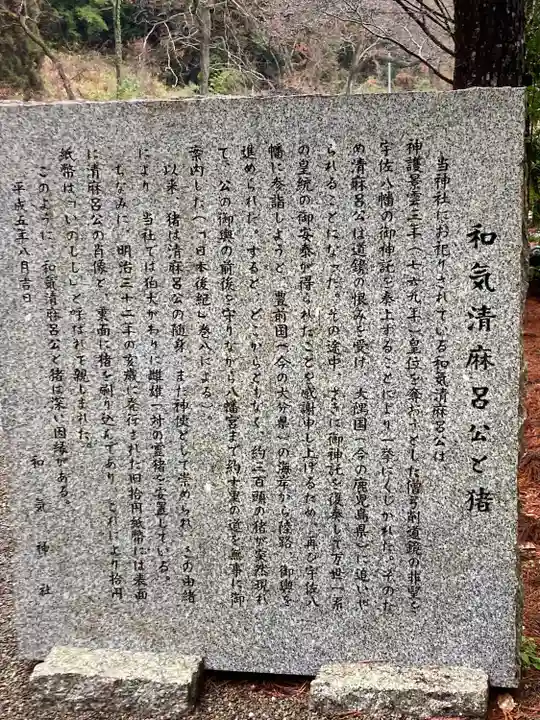 和気清麻呂公と猪
当神社にお祀りされている和気清麻呂公は
神護景雲三年(七六九年)皇位を奪おうとした僧弓削道鏡の非望を
宇佐八幡の御神託を奉上することにより一挙にくじかれた。そのた
め清麻呂公は道鏡の恨みを受け、大隅国(今の鹿児島県)に追いや
られることになった。その途中、さきに御神託を復奏して万世一系
の皇統の御安泰が得られたことを感謝申し上げるため、再び宇佐八
幡に参詣しようと、豊前国(今の大分県)の海岸から陸路、御輿を
進められた。すると、どこからともなく、約三百頭の猪が突然現れ
て、公の御輿の前後を守りながら八幡宮まで約十里の道を無事に御
案内した(「日本後紀」巻八による)。
以来、猪は清麻呂公の随身、また神使として崇められ、この由緒
により、当社では狛犬がわりに雌雄一対の霊猪を安置している。
ちなみに、明治三十二年の亥歳に発行された旧拾円紙幣には表面
に清麻呂公の肖像と、裏面に猪を刷り込んであり、これにより拾円
紙幣は「いのしし」と呼ばれて親しまれた。
このように、和気清麻呂公と猪は深い因縁がある。
平成五年八月吉日
和気神社